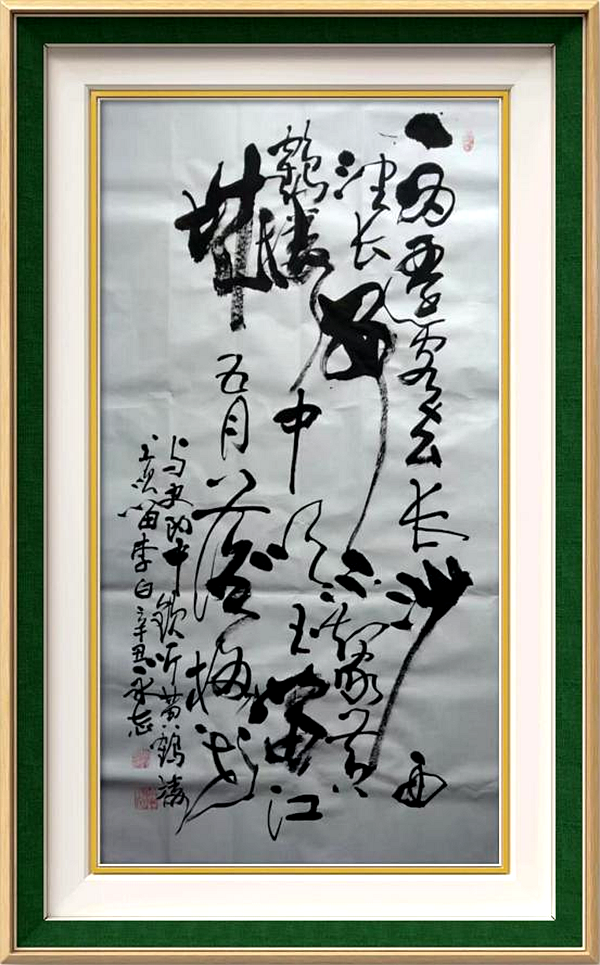 一为遷客去长沙西
望长安不见家黄
鶴楼中吹玉笛江
城五月落梅花
与史郎中钦听黄鶴楼
上吹笛李白辛丑永志